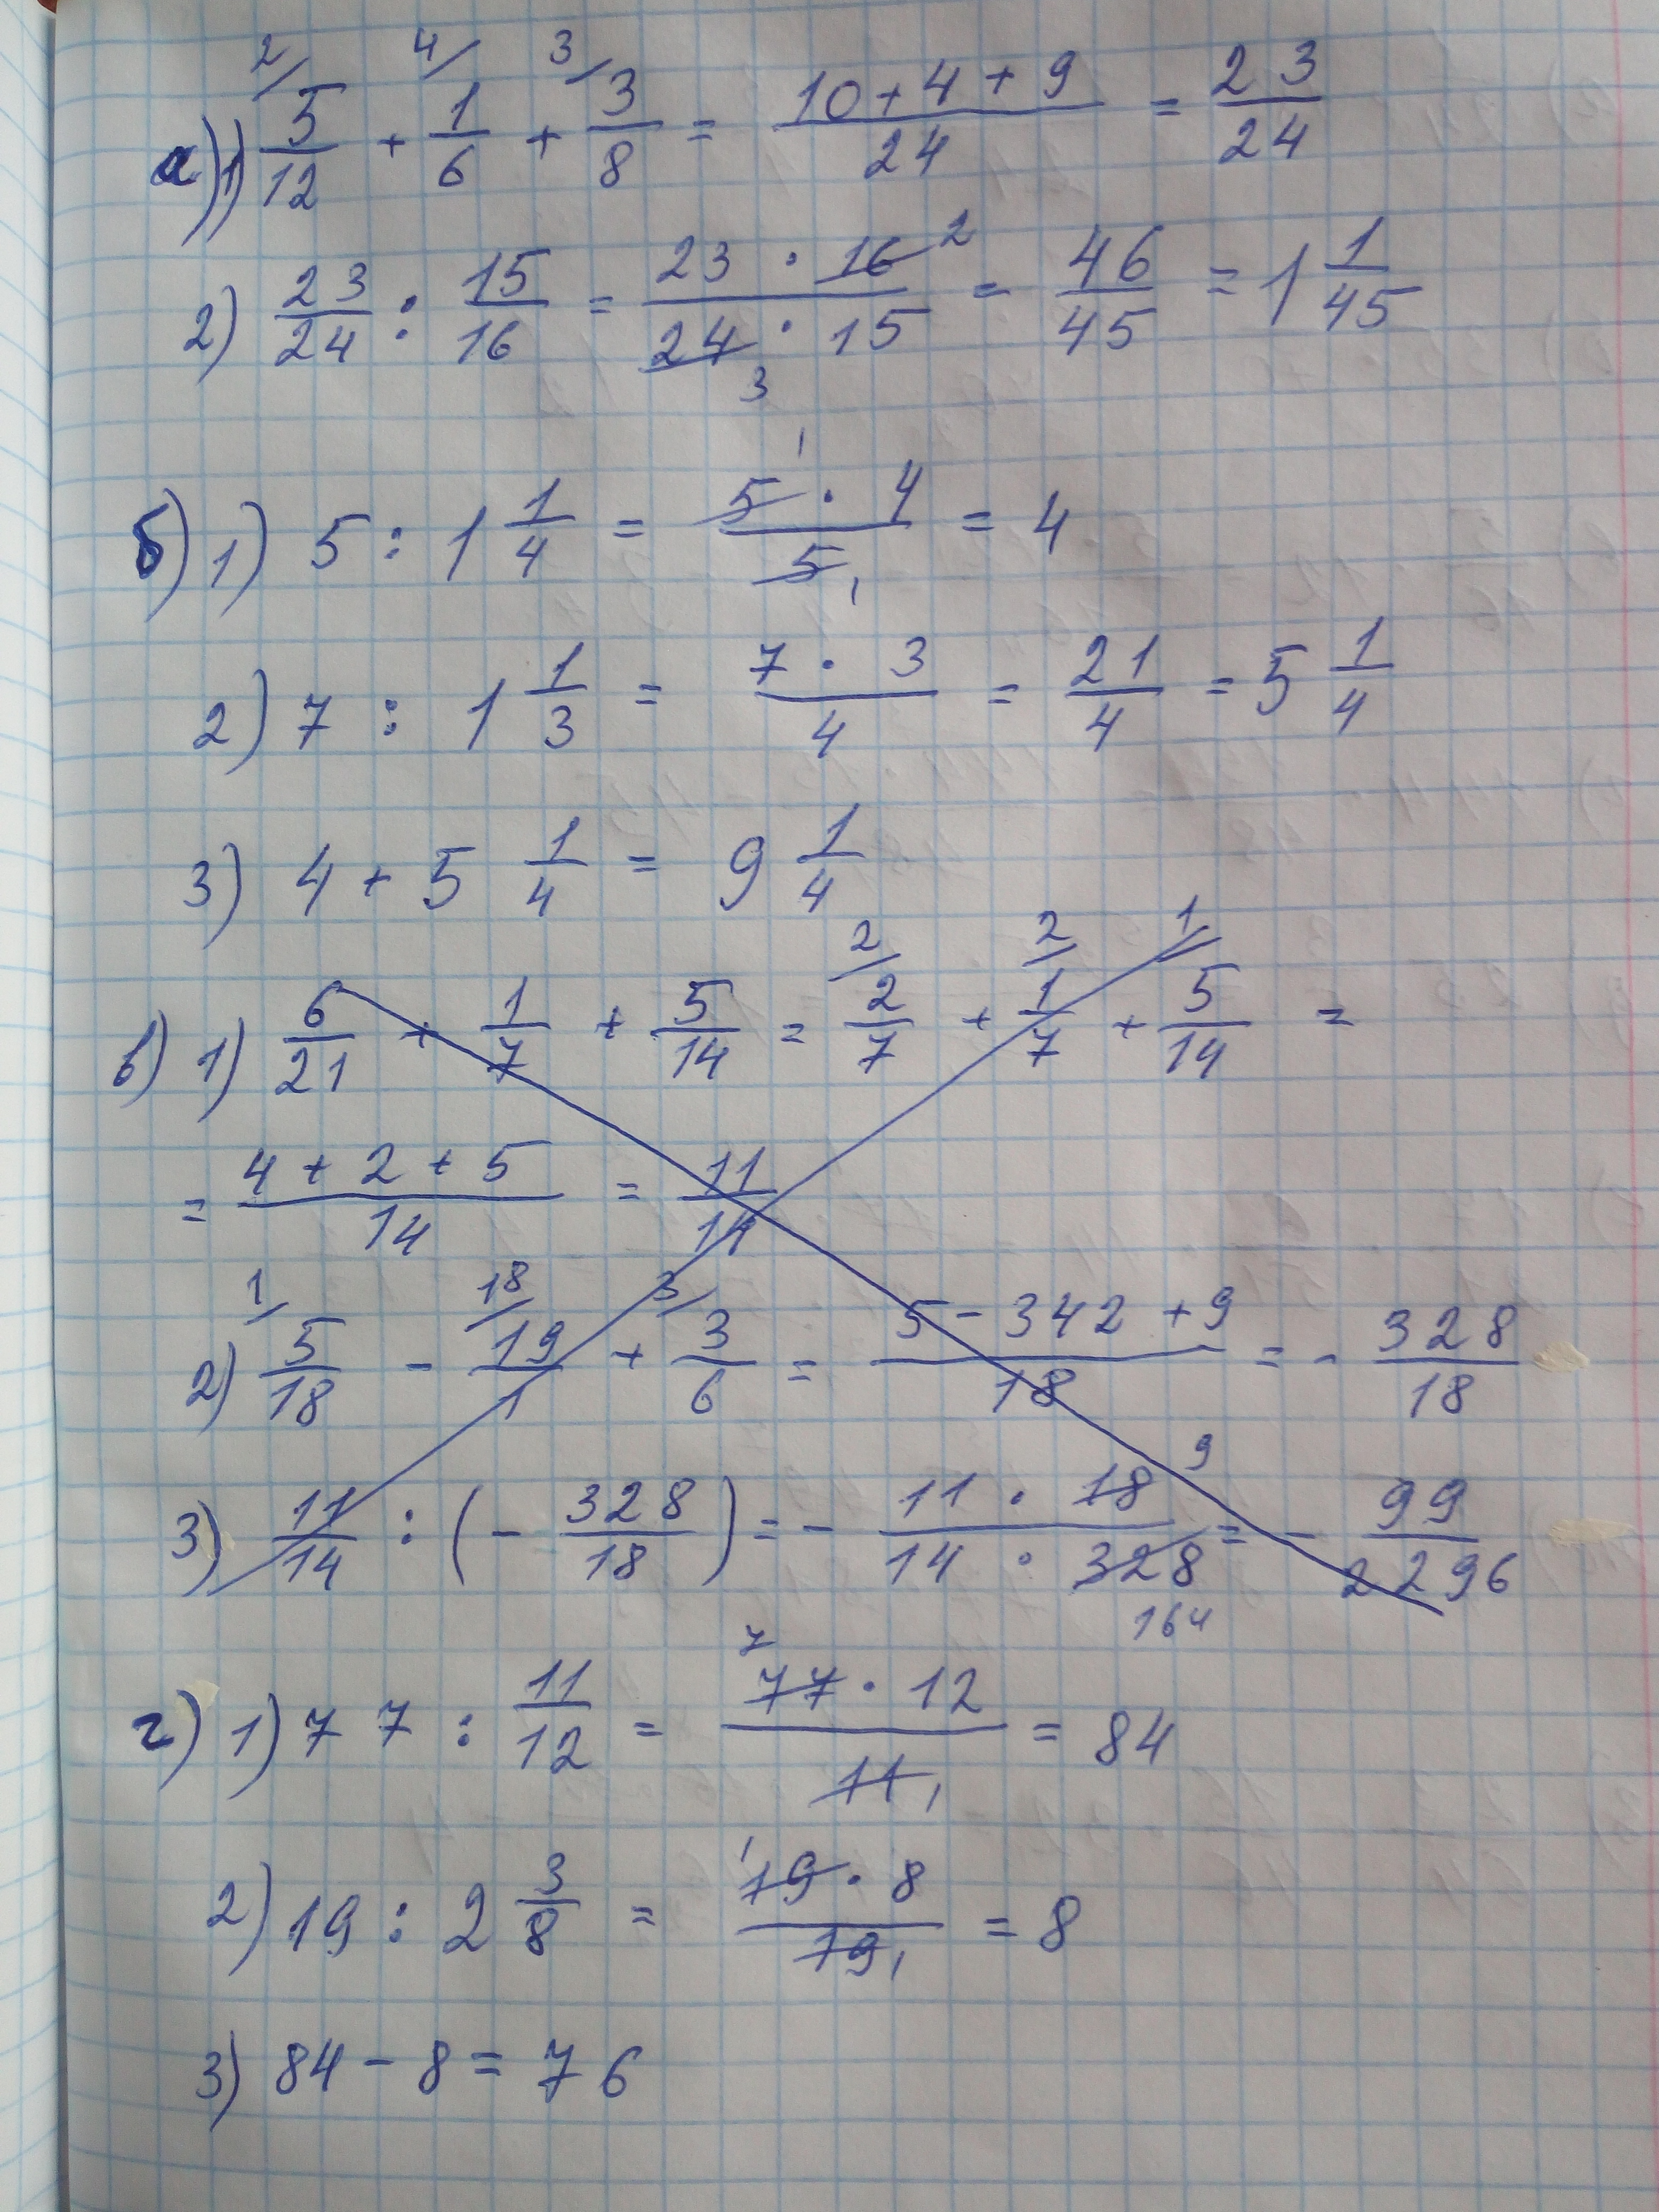 а) 1) 2/ 5/12 + 4/ 1/6 + 3/ 3/8 = (10 + 4 + 9)/24 = 23/24
2) 23/24 : 15/16 = (23 · 16 2)/(24 3 · 15) = 46/45 = 1 1/45
б) 1) 5 : 1 1/4 = (5 1 · 4)/(5 1) = 4
2) 7 : 1 1/3 = (7 · 3)/4 = 21/4 = 5 1/4
3) 4 + 5 1/4 = 9 1/4
в) 1) 6/21 + 1/7 + 5/14 = 2/ 2/7 + 2/ 1/7 + 1/ 5/14 =
= (4 + 2 + 5)/14 = 11/14
2) 1/ 5/18 - 18/ 19/1 + 3/ 3/6 = (5 - 342 + 9)/18 = - 328/18
3) 11/14 : (- 328/18) = - (11 · 18 9)/(14 · 328 164) = - 99/2296
г) 1) 77 : 11/12 = (7 77 · 12)/(11 1) = 84
2) 19 : 2 3/8 = (1 19 · 8)/(19 1) = 8
3) 84 - 8 = 76